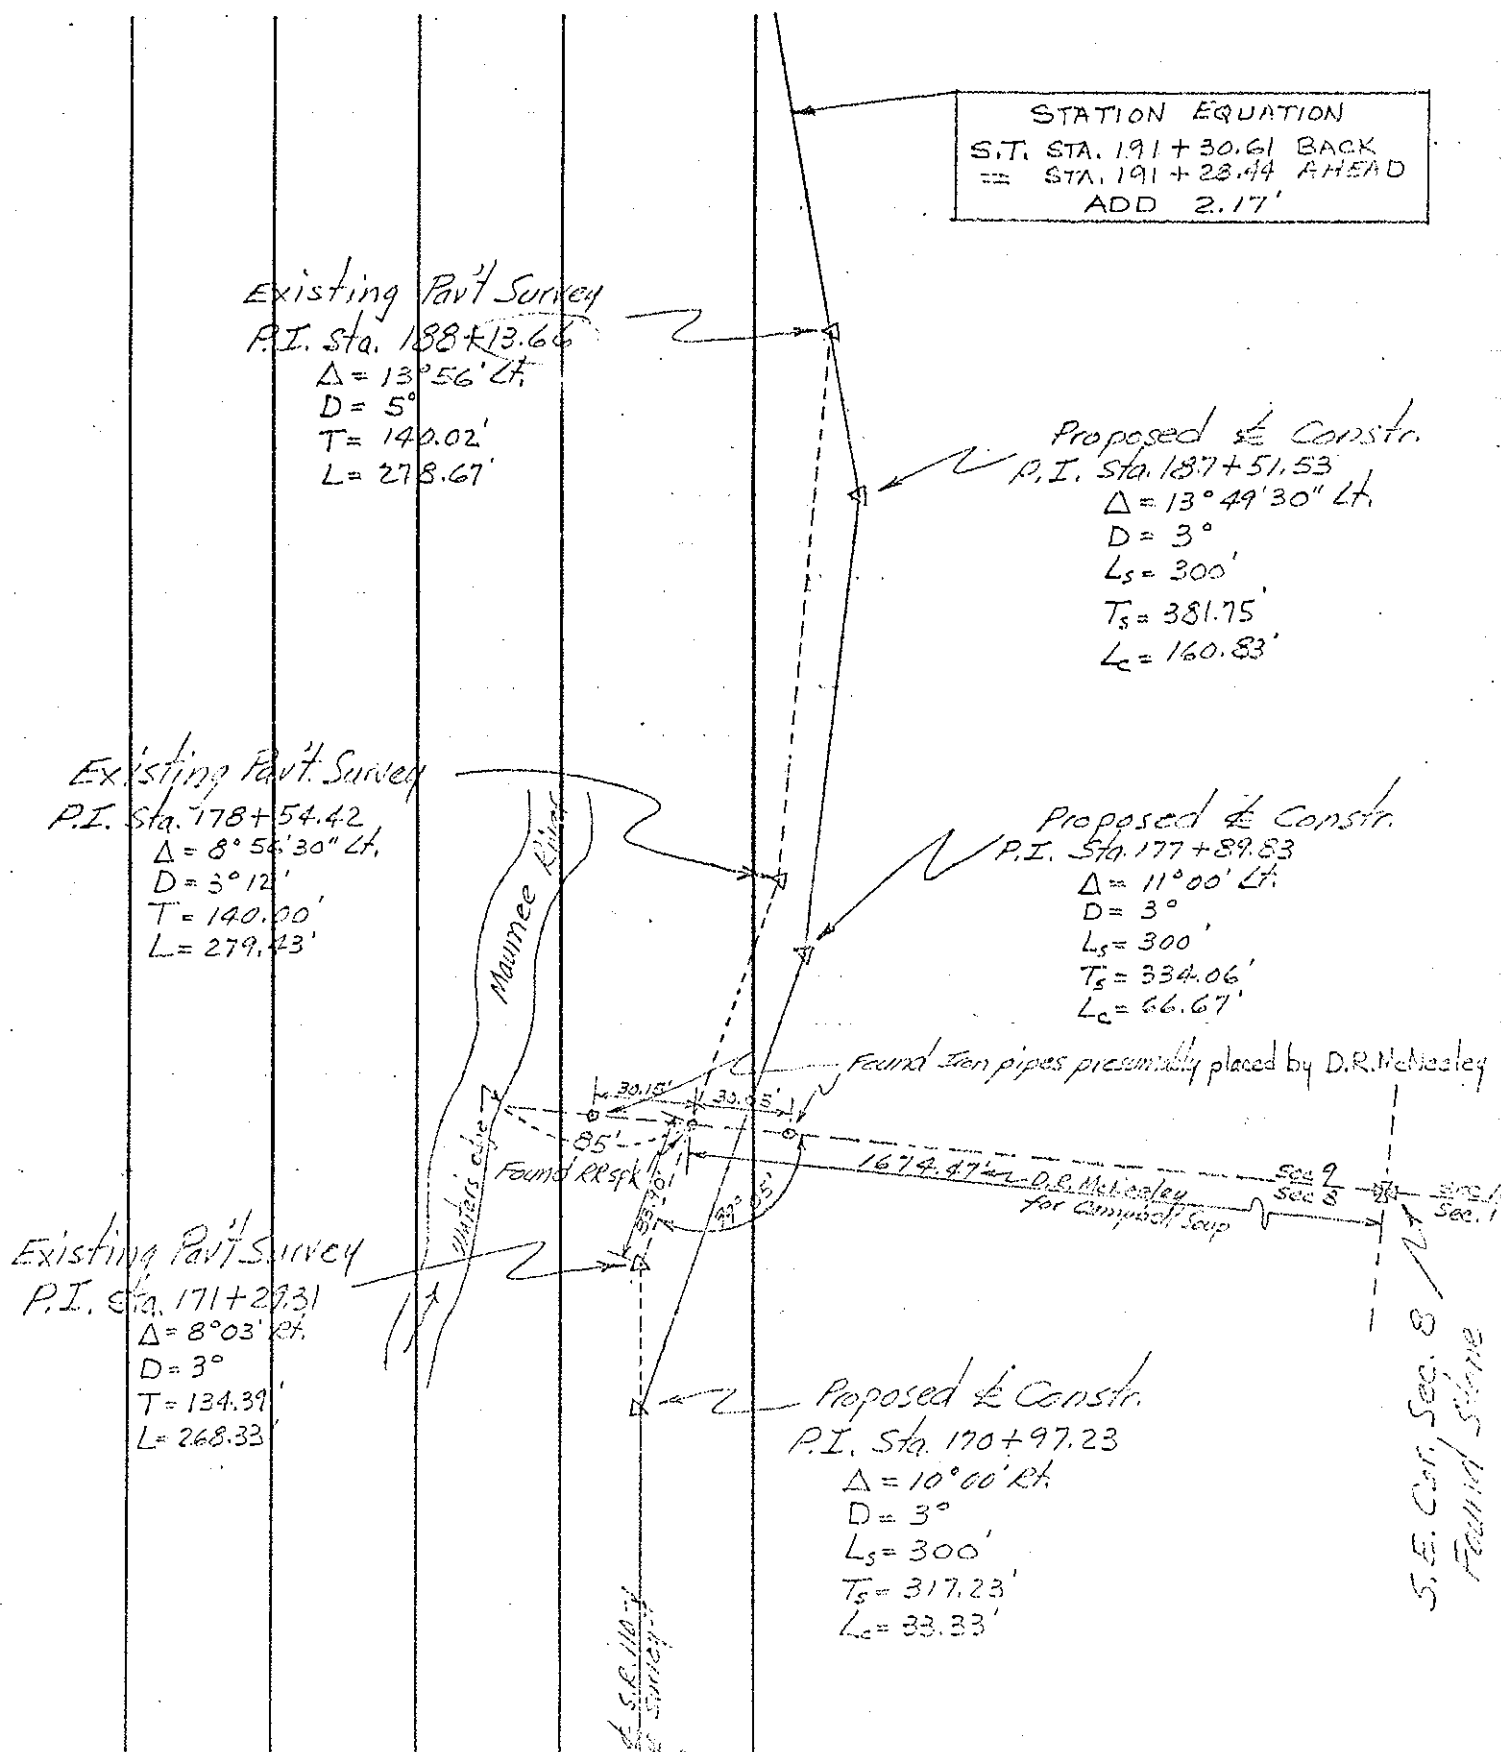 STATION EQUATION
S.T. STA. 191 + 30.61 BACK
= STA. 191 + 28.44 AHEAD
ADD 2.17'
Existing Pav't Survey
P.I. Sta. 188+13.66
Δ = 13°56' Lt.
D = 5°
T = 140.02'
L = 278.67'
Proposed ℄ Constr.
P.I. Sta. 187+51.53
Δ = 13°49'30" Lt.
D = 3°
Ls = 300'
Ts = 381.75'
Lc = 160.83'
Existing Pav't. Survey
P.I. Sta. 178+54.42
Δ = 8°56'30" Lt.
D = 3°12'
T = 140.00'
L = 279.43'
Maumee River
Proposed ℄ Constr.
P.I. Sta. 177+89.83
Δ = 11°00' Lt.
D = 3°
Ls = 300'
Ts = 334.06'
Lc = 66.67'
Found Iron pipes presumably placed by D.R. McNeeley
30.15'
30.03'
85'
Found RR spk
Waters edge
99°05'
1674.47'
D.R. McNeeley
for Campbell Soup
Sec 9
Sec 8
Sec. 1
Existing Pav't Survey
P.I. Sta. 171+29.31
Δ = 8°03' Rt.
D = 3°
T = 134.39'
L = 268.33'
S.E. Cor. Sec. 8
Found Stone
Proposed ℄ Constr.
P.I. Sta. 170+97.23
Δ = 10°00' Rt.
D = 3°
Ls = 300'
Ts = 317.23'
Lc = 33.33'
℄ S.R. 110
℄ Survey